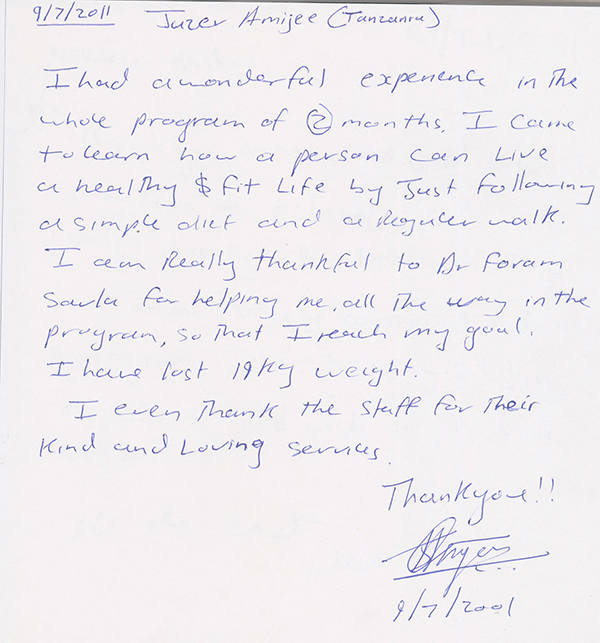 9/7/2011 Juzer Amijee (Tanzania)
I had a wonderful experience in the
whole program of ② months. I came
to learn how a person can Live
a healthy $ fit Life by Just following
a simple diet and a Reguler walk.
I am Really thankful to Dr Foram
Savla for helping me, all The way in the
program, so that I reach my goal.
I have lost 19 kg weight.
I even Thank the Staff for Their
Kind and Loving services.
Thankyou!!
9/7/2001